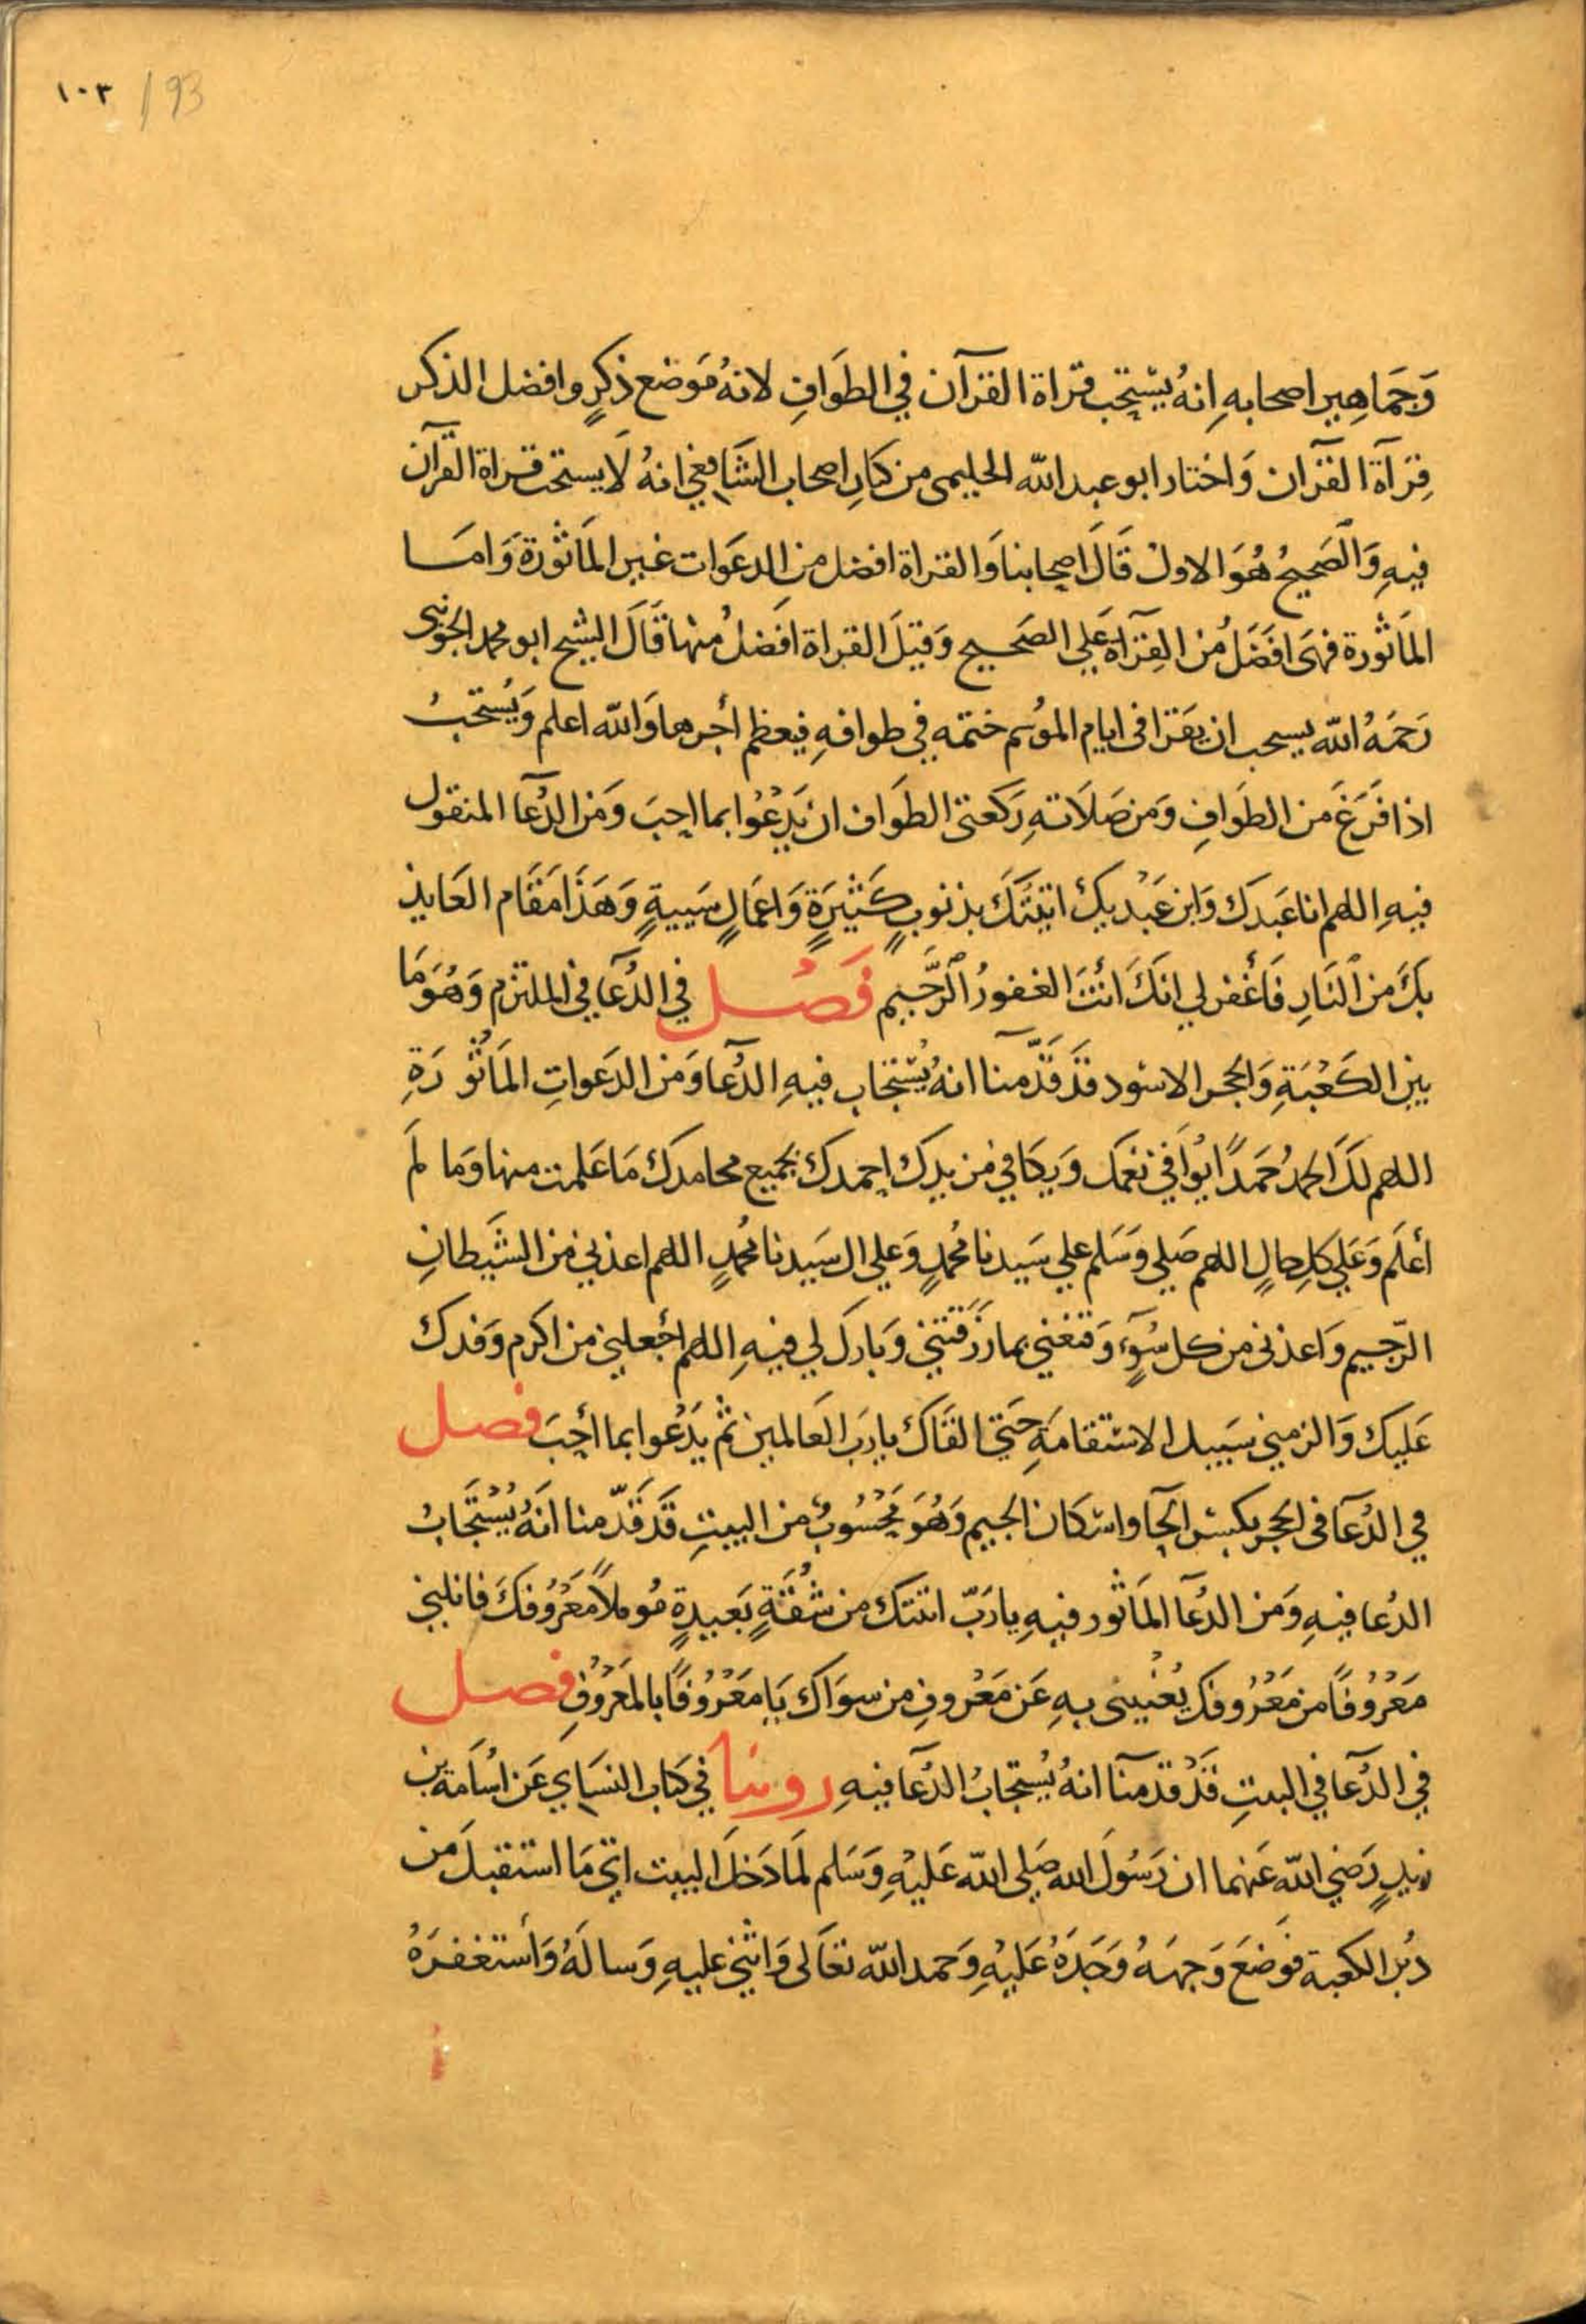 ١٠٣ / 93
وَجَمَاهِير اصحابهِ اِنهُ يسْتحِب قراة القرآن في الطوَافِ لانهُ مَوضع ذكرٍ وافضل الذكر
قِرَآة القرآن وَاختار ابو عبد الله الحليمى من كبَارِ اصحاب الشَافِعي انهُ لَا يستحب قراة القرآن
فيهِ وَالصَحيحُ هُوَ الاول قَالَ اصحابنا وَالقراة افضل من الدعَوَات غير المَاثورَة وَامَا
المَاثورة فهىَ افَضَلُ من القِرَآة عَلي الصَحيح وَقيلَ القراة افَضلُ منها قَالَ الشيخ ابو محمد الجوينى
رَحَمهُ الله يسحب ان يقرَا فى ايام الموُسم ختمه في طوافهِ فيعظم أجرها وَالله اعلم وَيُستحَبُ
اذا فَرَغَ من الطَوَافِ وَمن صَلَاتهِ رَكعتى الطوَاف ان يَدْعُوا بما احِبَ وَمَن الدُعَآ المنقول
فيهِ اللهم انا عَبدَكَ وَابن عَبْديكَ اتيتَكَ بذنوبٍ كَثيرَةٍ وَاعمَالٍ سَييةٍ وَهَذَا مَقَام العَايذ
بكَ من النَارِ فَأغفر لي انكَ أنتَ الغفورُ الرَّحَيم فَصُل في الدُعَآ في الملتزم وَهُوَ مَا
بين الكَعْبَةِ وَالحجر الاسْود قد قَدَّمنا انهُ يُسْتجَاب فيهِ الدُعَآ وَمَن الدَعَواتِ المَاثُورَةِ
اللهم لَكَ الحمدُ حَمَدًا يُوَافي نعَمَك وَيكَافي مَزيدك احِمدك بجَميع محامدك مَا عَلمت منها وَما لَم
أعلَم وَعَلي كلِ حالٍ اللهم صَلي وَسَلم علي سَيدنا مُحمدٍ وَعلي ال سَيدنا مُحمدٍ اللهم اعذني من الشَيطانِ
الرّجيم وَاعذنى من كل سُوٓءٍ وَقنعْني بما رَزَقتَني وَبارك لي فيهِ اللهم اجْعلني من اكرم وَفدك
عَليكَ وَالزمني سَبيل الاسْتقامَةِ حَتي القَاك يا رَبَ العَالمين ثم يَدْعُوا بما أحِبَ فصل
في الدُعَآ فى الحَجر بكسْر الحَآ واسْكان الجيم وَهُوَ مَحْسُوبٌ من البيتِ قَد قَدّمنا انَهُ يُسْتجَابُ
الدُعا فيهِ وَمن الدُعَآ المَاثور فيهِ يا رَبّ اتتك من شُقَّةٍ بَعيدةٍ مُوملًا مَعْرُوفكَ فانلنى
مَعْرُوفًا من مَعْرُوفك يُغْنيينى بهِ عَن مَعْروفِ من سوَاك يَا مَعْرُوفًا بالمَعْرُوفِ فصل
في الدُعَآ في البيتِ قَدْ قدمَنآ انهُ يُستجَابُ الدُعَآ فيهِ روينا في كتاب النسَاي عَن اسُامَة بن
زيدٍ رَضي الله عَنهما ان رَسُولَ الله صَلي الله عَليْهِ وَسَلم لَما دَخَلَ البيت اتى مَا استقبلَ من
دُبُر الكعبة فوَضعَ وَجهَهُ وَخَدَهُ عَليْهِ وَحمد الله تعَالى وَاثنى عليهِ وَسالهُ وَأستغفرَهُ